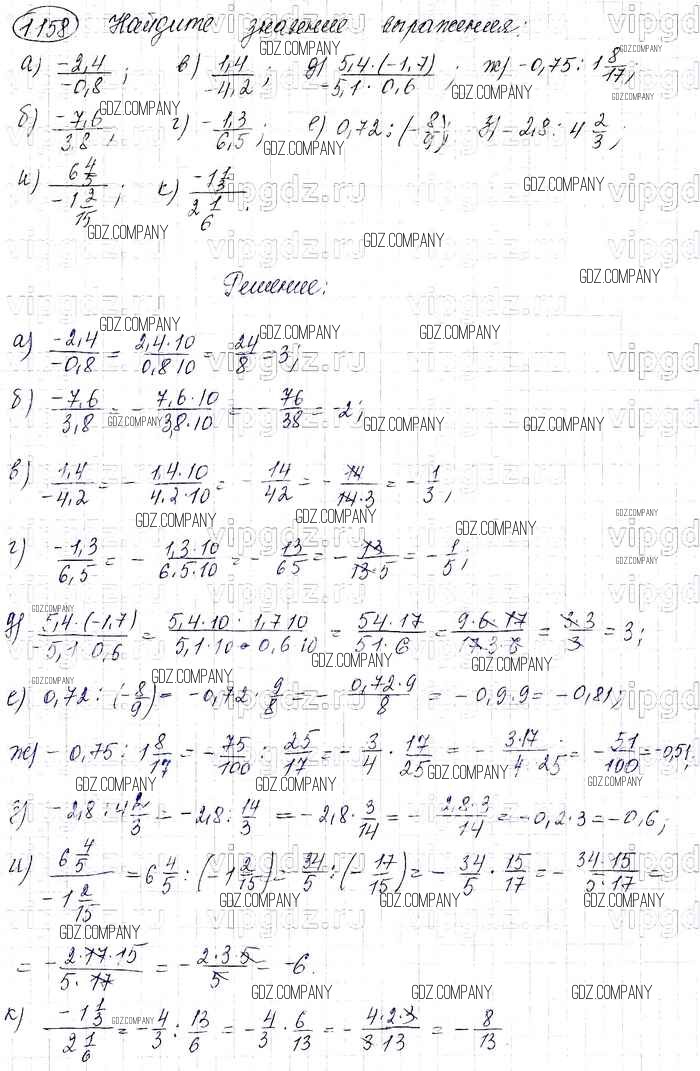 1158 Найдите значение выражения:
а) -2,4/-0,8; в) 1,4/-4,2; д) 5,4·(-1,7)/-5,1·0,6. ж) -0,75 : 1 8/17;
б) -7,6/3,8; г) -1,3/6,5; е) 0,72 : (-8/9); з) -2,8 : 4 2/3;
и) 6 4/5/-1 2/15; к) -1 1/3/2 1/6.
Решение:
а) -2,4/-0,8 = 2,4·10/0,8·10 = 24/8 = 3;
б) -7,6/3,8 = - 7,6·10/3,8·10 = - 76/38 = -2;
в) 1,4/-4,2 = - 1,4·10/4,2·10 = - 14/42 = - 14/14·3 = - 1/3;
г) -1,3/6,5 = - 1,3·10/6,5·10 = - 13/65 = - 13/13·5 = - 1/5;
д) 5,4·(-1,7)/-5,1·0,6 = 5,4·10·1,7·10/5,1·10·0,6·10 = 54·17/51·6 = 9·6·17/17·3·6 = 3·3/3 = 3;
е) 0,72 : (-8/9) = -0,72 · 9/8 = - 0,72·9/8 = -0,9·9 = -0,81;
ж) -0,75 : 1 8/17 = - 75/100 : 25/17 = - 3/4 · 17/25 = - 3·17/4·25 = - 51/100 = -0,51;
з) -2,8 : 4 2/3 = -2,8 : 14/3 = -2,8 · 3/14 = - 2,8·3/14 = -0,2·3 = -0,6;
и) 6 4/5/-1 2/15 = 6 4/5 : (-1 2/15) = 34/5 : (- 17/15) = - 34/5 · 15/17 = - 34·15/5·17 =
= - 2·17·15/5·17 = - 2·3·5/5 = -6.
к) -1 1/3/2 1/6 = - 4/3 : 13/6 = - 4/3 · 6/13 = - 4·2·3/3·13 = - 8/13.
GDZ.COMPANY
vipgdz.ru